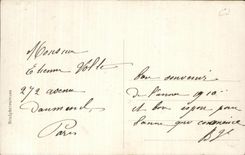 Monsieur
Etienne Volte
272 avenue
Daumesnil
Paris
bon souvenir
de l'année 1910
et bon espoir pour
l'année qui commence